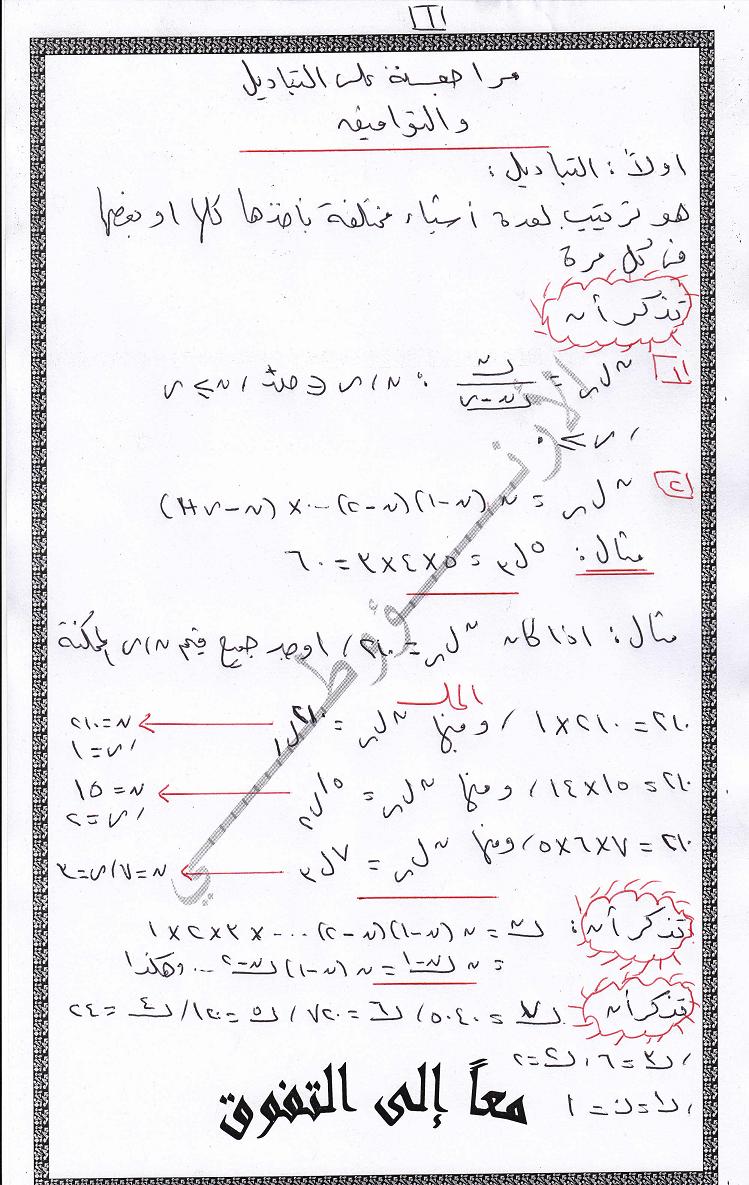 [١]
مراجعة على التباديل
والتوافيق
اولاً : التباديل :
هو ترتيب لعدة أشياء مختلفة بأخذها كلها او بعضها
فى كل مرة
تذكر أن
[١] ⁿلر = ن! / (ن-ر)! ، ن ، ر ∈ صـ+ ، ن ≥ ر
، ر ≥ ٠
[٢] ⁿلر = ن (ن-١)(ن-٢) ... × (ن-ر+١)
مثال : ⁵ل٣ = ٥×٤×٣ = ٦٠
مثال : اذا كان ⁿلر = ٢١٠ ، اوجد جميع قيم ن ، ر الممكنة
الحل
٢١٠ = ٢١٠×١ ، ومنها ⁿلر = ²¹⁰ل١ ← ن = ٢١٠
، ر = ١
٢١٠ = ١٥×١٤ ، ومنها ⁿلر = ¹⁵ل٢ ← ن = ١٥
، ر = ٢
٢١٠ = ٧×٦×٥ ، ومنها ⁿلر = ⁷ل٣ ← ن = ٧ ، ر = ٣
تذكر أن : ن! = ن (ن-١)(ن-٢) ... × ٣×٢×١
= ن (ن-١)! = ن (ن-١) (ن-٢)! ... وهكذا
تذكر أن ٧! = ٥٠٤٠ ، ٦! = ٧٢٠ ، ٥! = ١٢٠ ، ٤! = ٢٤
، ٣! = ٦ ، ٢! = ٢
، ١! = ٠! = ١
معاً إلى التفوق